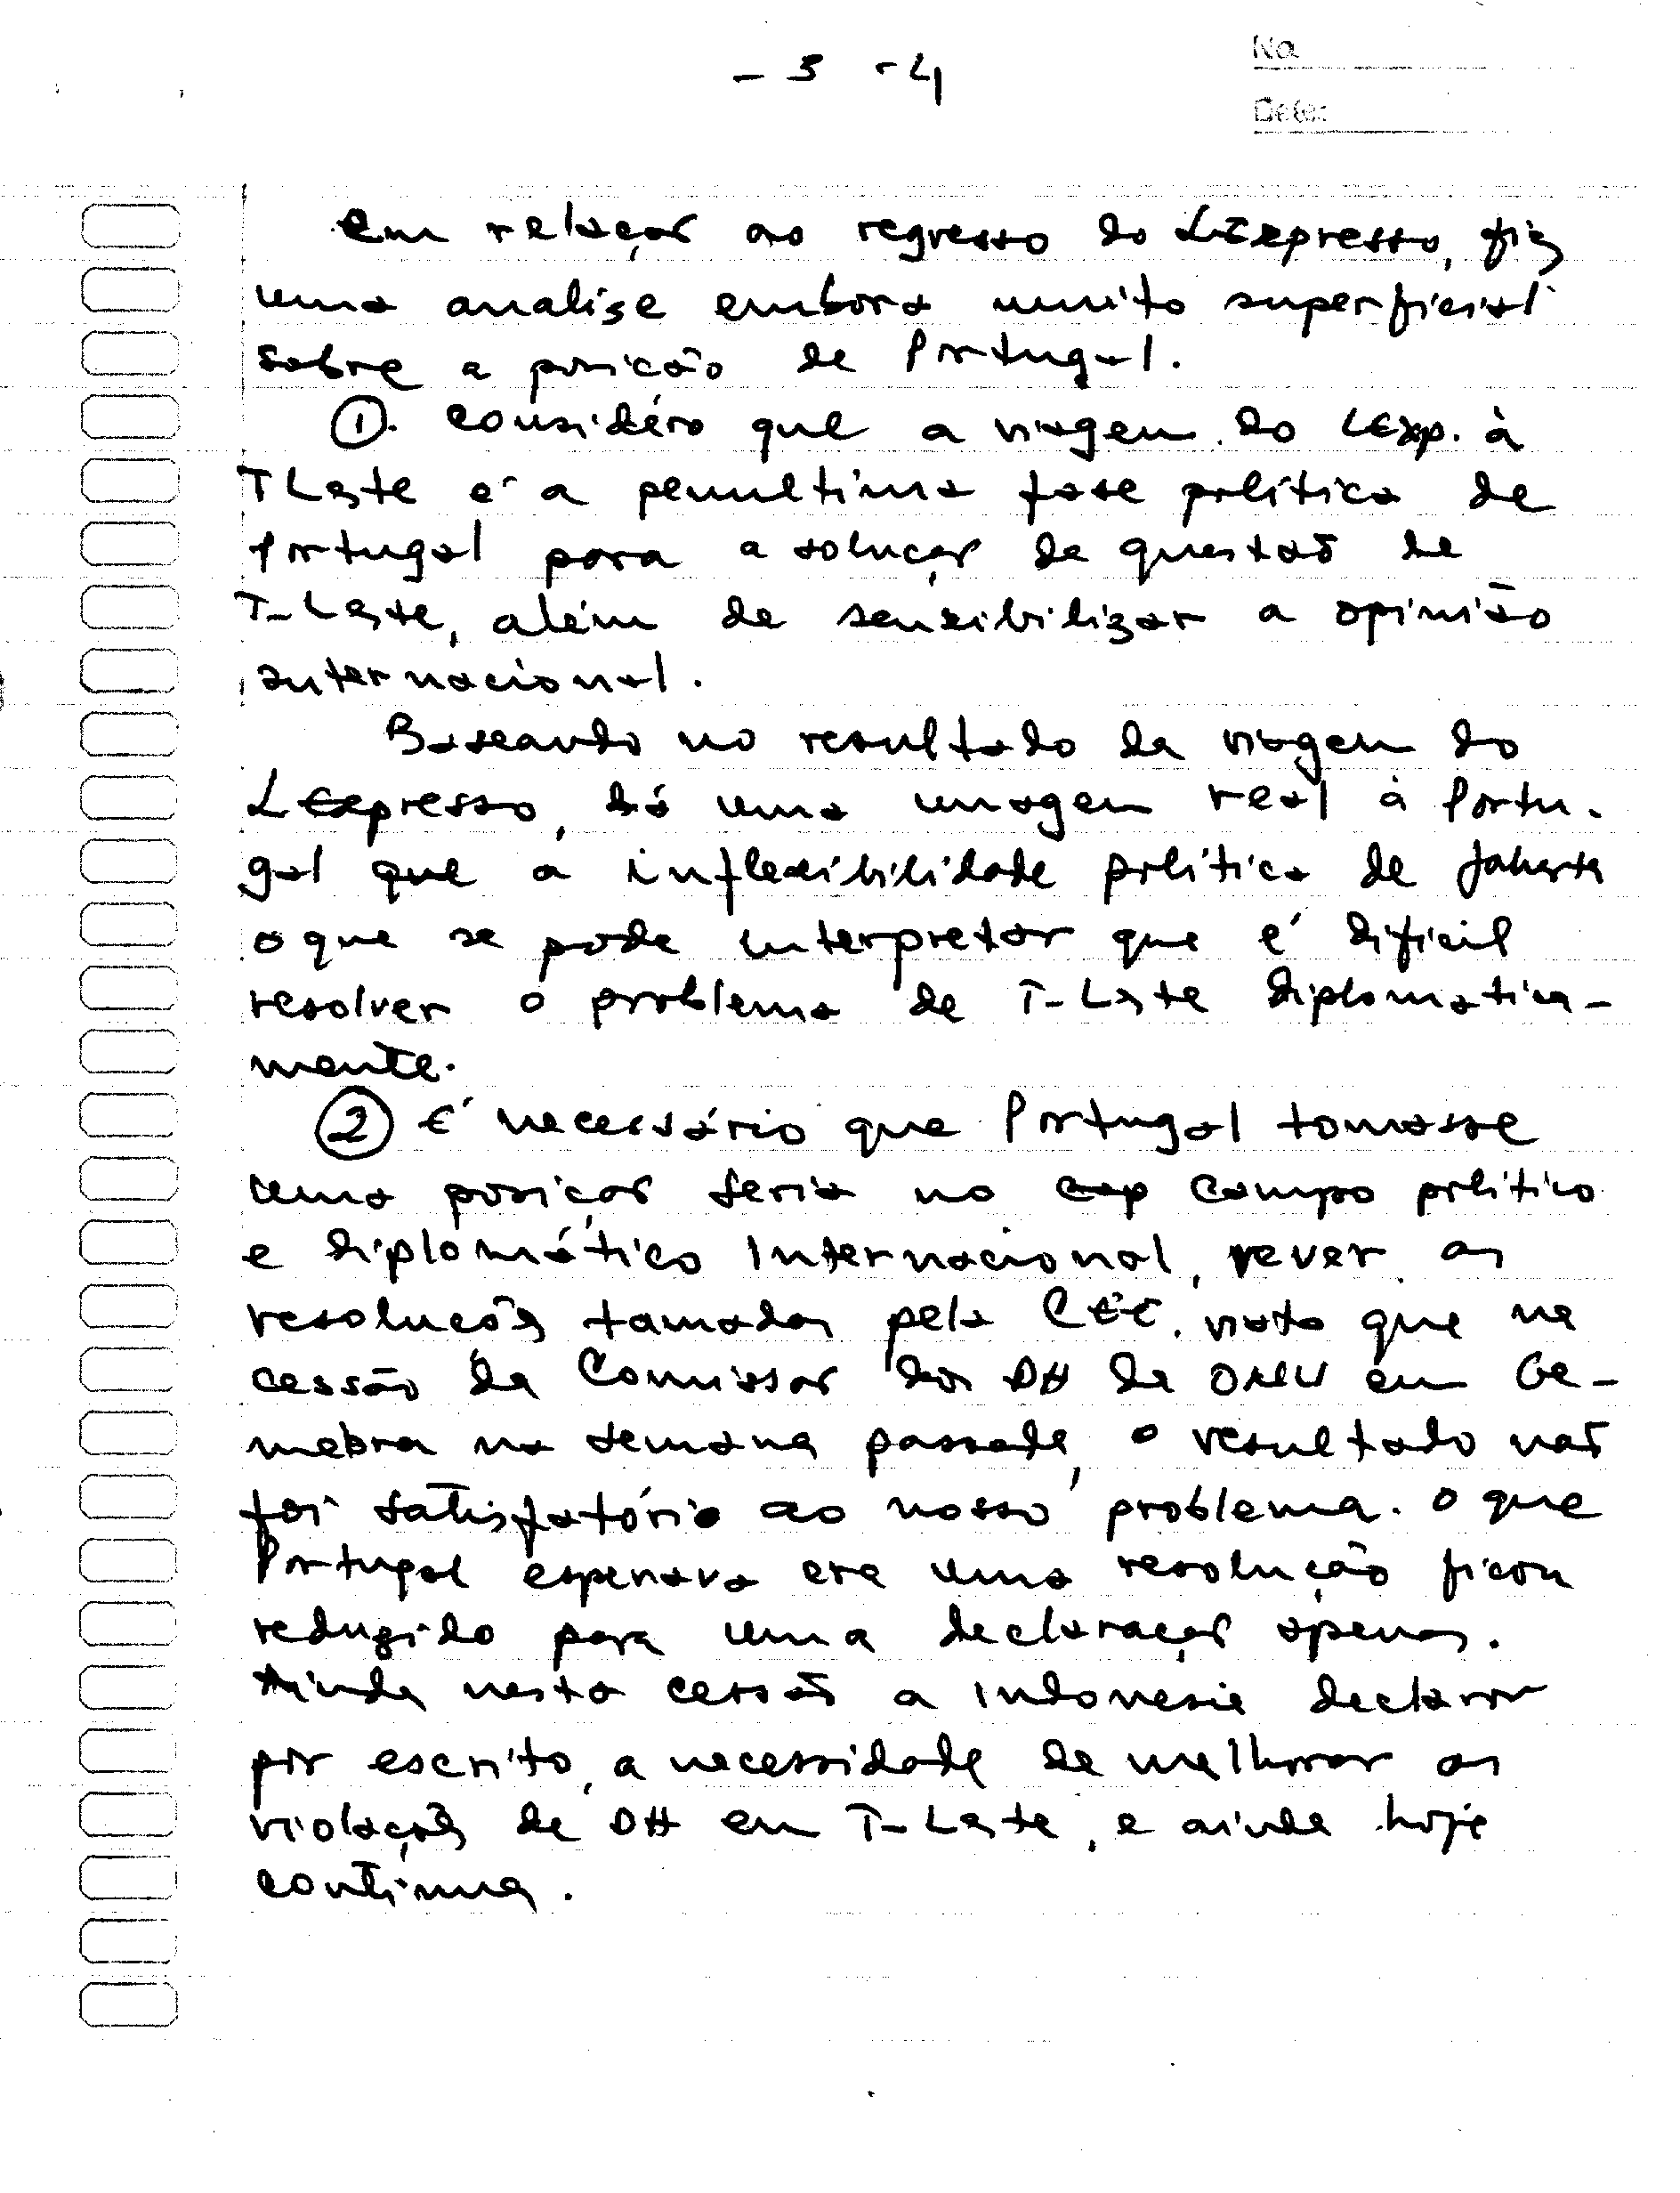 - 3 - 4
No.
Date:
em relaçaõ ao regresso do LExpresso, fiz
uma analise embora muito superficial
sobre a posicão de Portugal.
①. considéro que a viagem do LExp. à
TLeste e' a penultima fase politica de
Portugal para a soluçaõ da questaõ de
T-Leste, além de sensibilizar a opinião
internacional.
Baseando no resultado da viagem do
LExpresso, dá uma imagem real à Portu-
gal que a inflexibilidade politica de Jakarta
o que se pode interpretar que é dificil
resolver o problema de T-Leste diplomatica-
mente.
② É necessário que Portugal tomasse
uma posiçaõ seria no cap campo politico
e diplomático Internacional, rever as
resoluçoẽs tomadas pela CEE, visto que na
cessão da Comissaõ dos DH da ONU em Ge-
nebra na semana passada, o resultado naõ
foi satisfatório ao nosso problema. O que
Portugal esperava era uma resolução ficou
reduzido para uma declaraçaõ apenas.
Ainda nesta cessaõ a Indonesia declarou
por escrito, a necessidade de melhorar as
violaçoẽs de DH em T-Leste, e ainda hoje
continua.